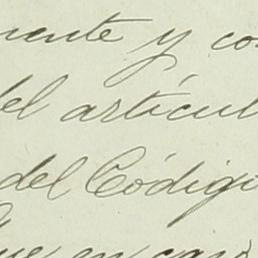 mente y co
del artícul
del Códig
que en cas